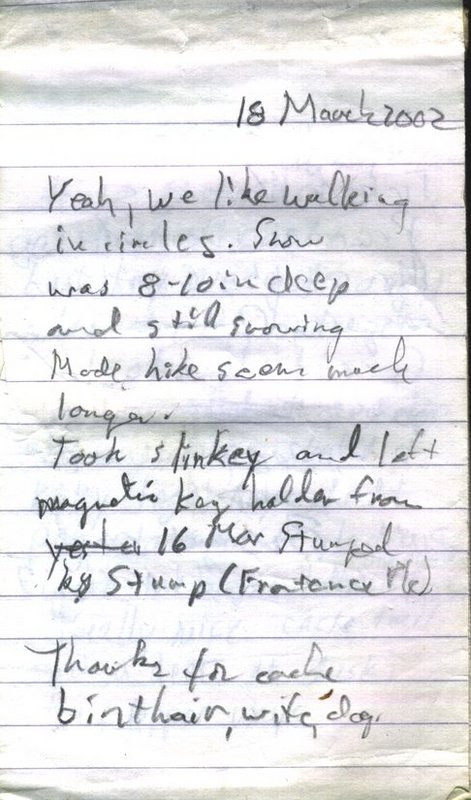 18 March 2002
Yeah, we like walking
in circles. Snow
was 8-10 in deep
and still snowing
Made hike seem much
longer.
Took slinkey and left
magnetic key holder from
16 Mar Stumped
by Stump (Frontenac Pk)
Thanks for cache
birthair, wife, dog.